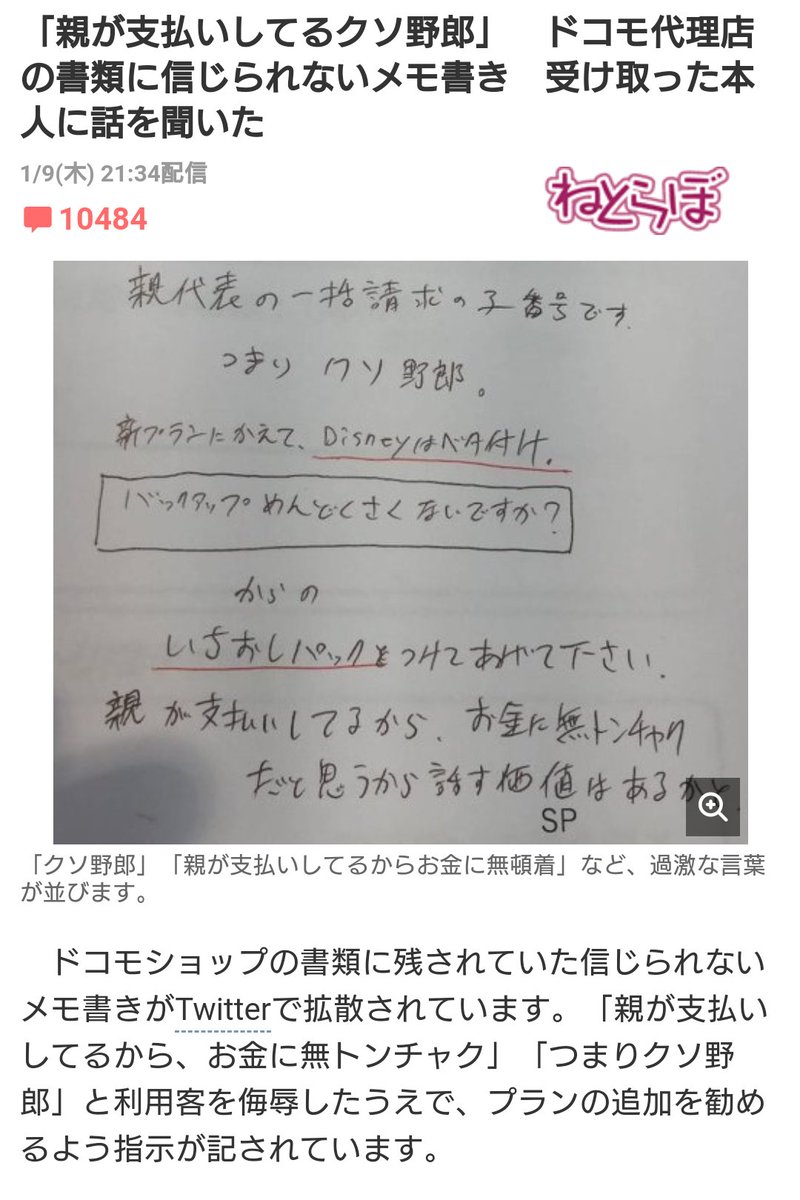 「親が支払いしてるクソ野郎」　ドコモ代理店
の書類に信じられないメモ書き　受け取った本
人に話を聞いた
1/9(木) 21:34配信
ねとらぼ
10484
親代表の一括請求の子番号です。
つまり クソ野郎。
新プランにかえて、Disneyはベタ付け。
バックアップめんどくさくないですか？
からの
いちおしパックをつけてあげて下さい。
親が支払いしてるから、お金に無トンチャク
だと思うから話す価値はあるかと。
SP
「クソ野郎」「親が支払いしてるからお金に無頓着」など、過激な言葉
が並びます。
　ドコモショップの書類に残されていた信じられない
メモ書きがTwitterで拡散されています。「親が支払い
してるから、お金に無トンチャク」「つまりクソ野
郎」と利用客を侮辱したうえで、プランの追加を勧め
るよう指示が記されています。